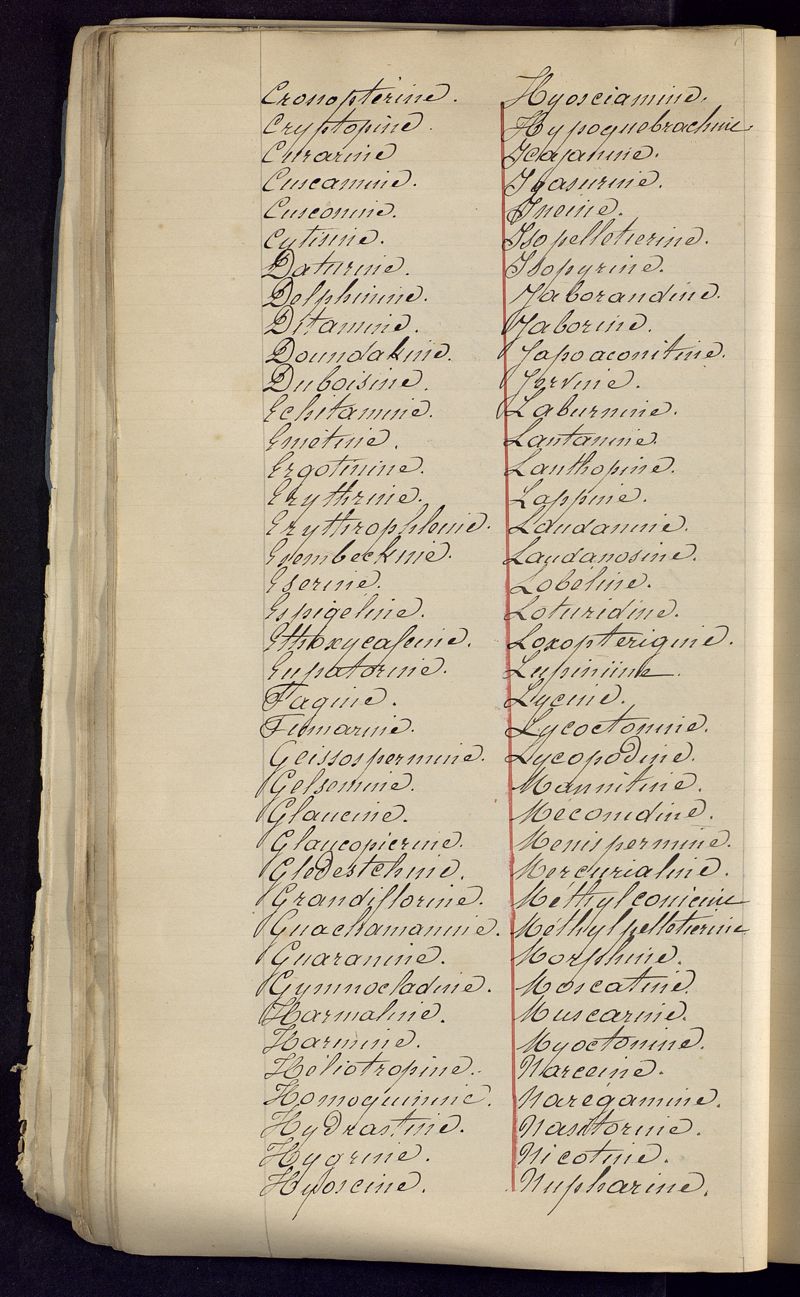 Cronoptérine.
Cryptopine.
Curarine
Cuscamine.
Cusconine.
Cytisine.
Daturine.
Delphinine.
Ditamine.
Doundakine.
Duboisine.
Echitamine.
Emétine.
Ergotinine.
Erythrine.
Erythrophleine.
Esembeckine.
Eserine.
Espigéline.
Ethoxycaféine.
Eupatorine.
Fagine.
Fumarine.
Geissospermine.
Gelsemine.
Glaucine.
Glaucopicrine.
Gledestchine.
Grandiflorine.
Guachamamine.
Guaranine.
Gymnocladine.
Harmaline.
Harmine.
Héliotropine.
Homoquinine.
Hydrastine.
Hygrine.
Hyoscine.
Hyosciamine.
Hypoquebrachine.
Icajanine.
Igasurine.
Ineine.
Isopelletierine.
Isopyrine.
Jaborandine.
Jaborine.
Japoaconitine.
Jervine.
Laburnine.
Lantanine.
Lanthopine.
Lappine.
Laudanine.
Laudanosine.
Lobéline.
Loturidine.
Loxopterigine.
Lupiniine.
Lycine.
Lycoctonine.
Lycopodine.
Mannitine.
Méconidine.
Menispermine.
Mercurialine.
Méthylconicine
Méthylpelletierine
Morphine.
Moscatine.
Muscarine.
Myoctonine.
Narceine.
Narégamine.
Nasitorine.
Nicotine.
Nupharine.